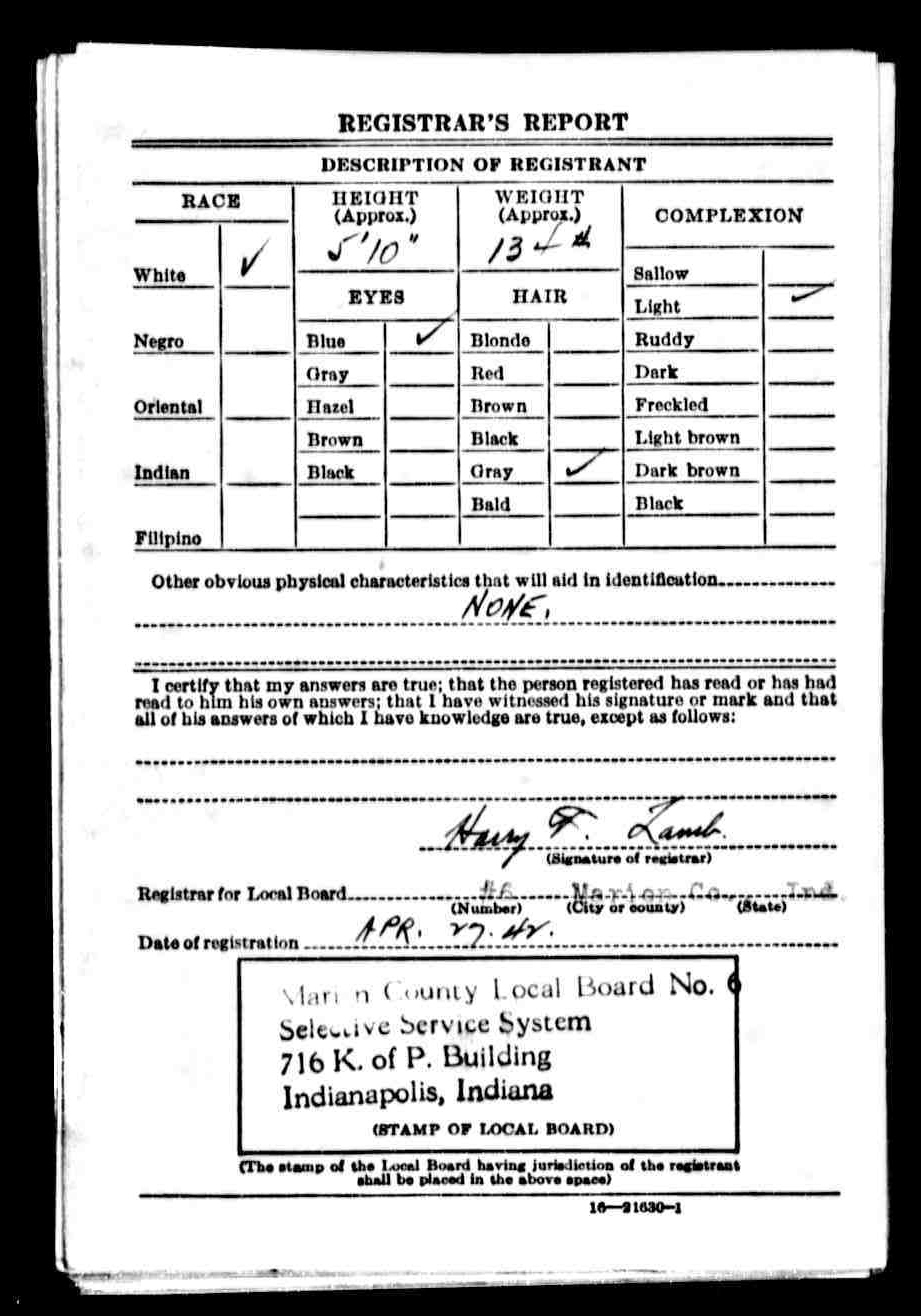 REGISTRAR'S REPORT
DESCRIPTION OF REGISTRANT
RACE
HEIGHT
(Approx.)
WEIGHT
(Approx.)
COMPLEXION
5'10"
134 th
White ✓
Sallow
EYES
HAIR
Light ✓
Negro
Blue ✓
Blonde
Ruddy
Gray
Red
Dark
Oriental
Hazel
Brown
Freckled
Brown
Black
Light brown
Indian
Black
Gray ✓
Dark brown
Bald
Black
Filipino
Other obvious physical characteristics that will aid in identification
NONE.
I certify that my answers are true; that the person registered has read or has had
read to him his own answers; that I have witnessed his signature or mark and that
all of his answers of which I have knowledge are true, except as follows:
Harry F. Lamb.
(Signature of registrar)
Registrar for Local Board #6 Marion Co., Ind.
(Number) (City or county) (State)
Date of registration APR. 27. 42.
Marion County Local Board No. 6
Selective Service System
716 K. of P. Building
Indianapolis, Indiana
(STAMP OF LOCAL BOARD)
(The stamp of the Local Board having jurisdiction of the registrant
shall be placed in the above space)
16—21630-1